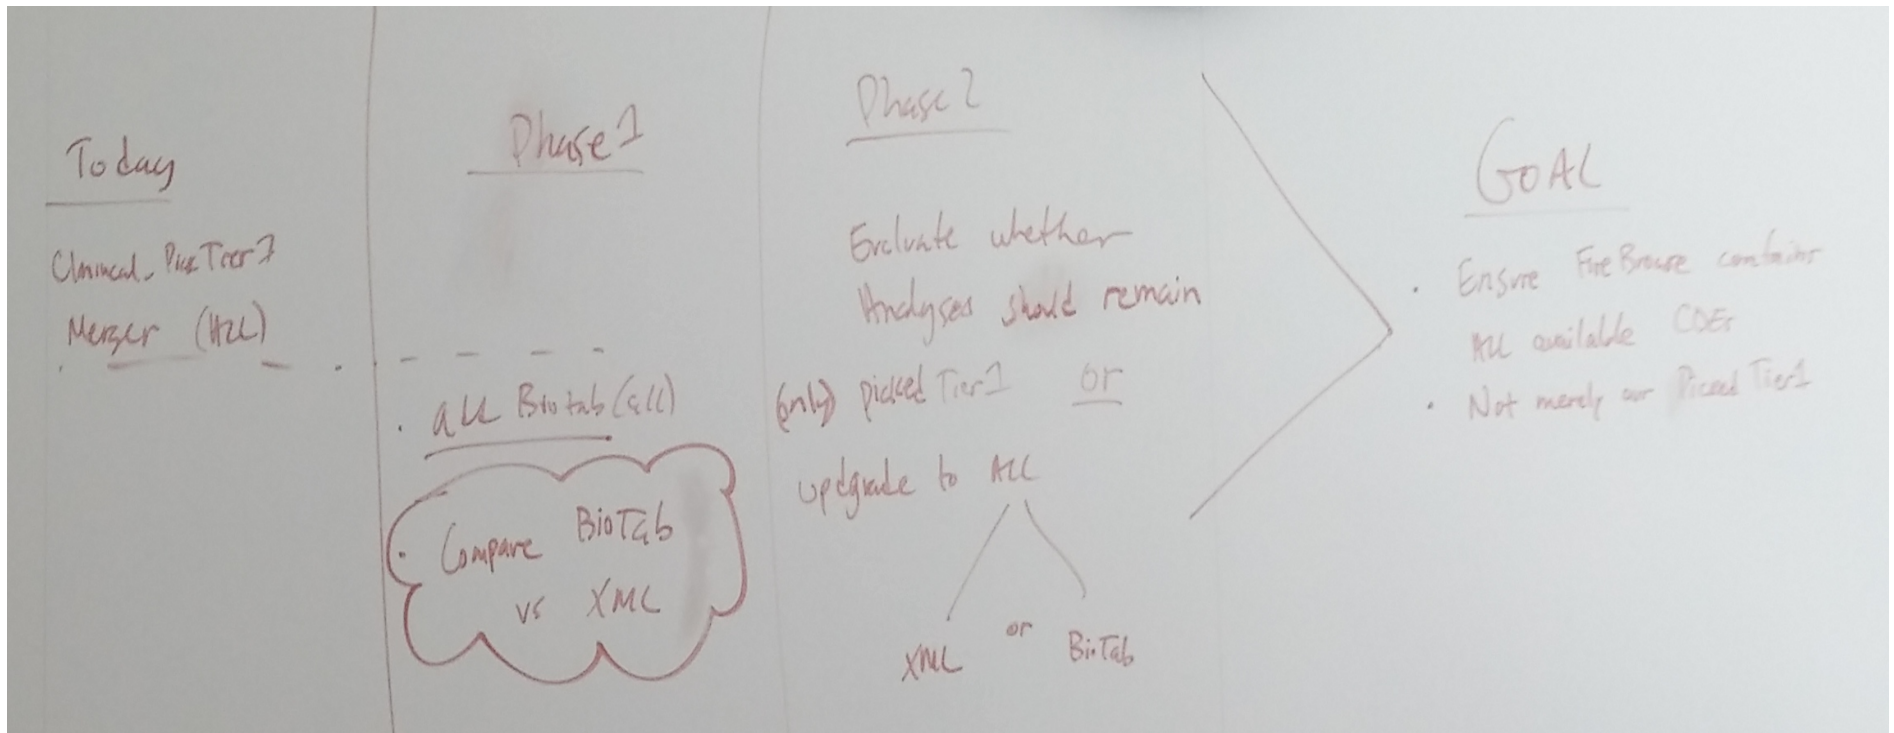 Today
Clinical_Pick Tier 1
Merger (ALL)
Phase 1
. all Biotab (all)
. Compare BioTab
vs XML
Phase 2
Evaluate whether
Analyses should remain
(only) picked Tier 1 or
updgrade to ALL
XML or BioTab
GOAL
. Ensure FireBrowse contains
ALL available CDEs
. Not merely our Picked Tier 1